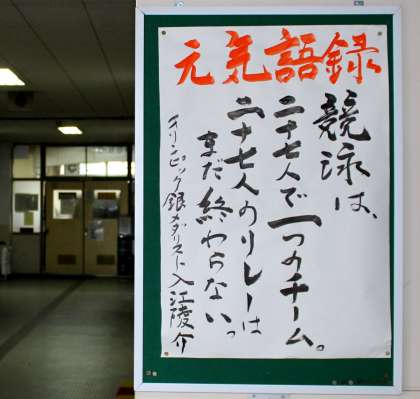 元気語録
競泳は、
二十七人で一つのチーム。
二十七人のリレーは
まだ終わらない。
オリンピック銀メダリスト入江陵介